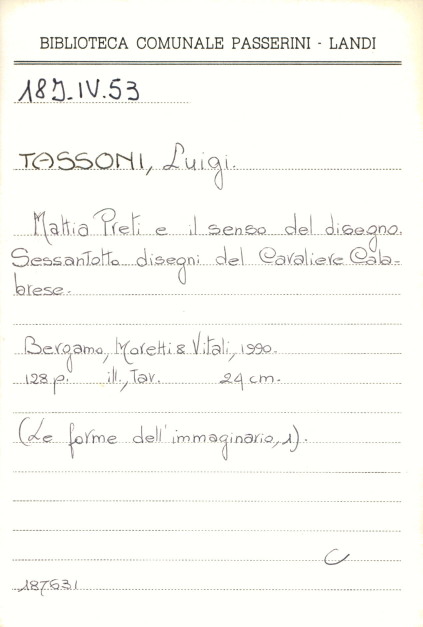 BIBLIOTECA COMUNALE PASSERINI - LANDI
18J.IV.53
TASSONI, Luigi.
Mattia Preti e il senso del disegno.
Sessantotto disegni del Cavaliere Cala-
brese.
Bergamo, Moretti & Vitali, 1990.
128 p. ill., Tav. 24 cm.
(Le forme dell'immaginario, 1).
C
187631